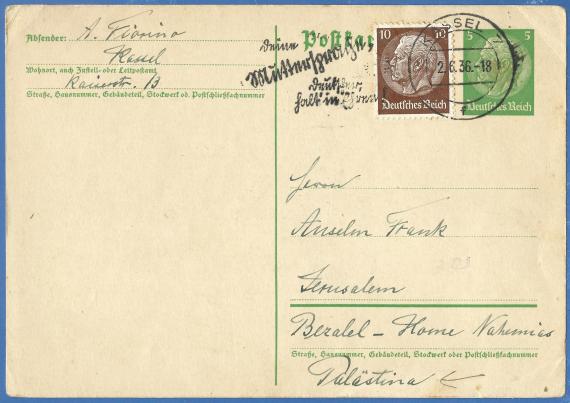 Absender: A. Fiorino
Kassel
Wohnort, auch Zustell- oder Leitpostamt
Kaiserstr. 13
Straße, Hausnummer, Gebäudeteil, Stockwerk od. Postschließfachnummer
Postkarte
Deine
Muttersprache,
Deutscher,
halt in Ehren!
10 10
Deutsches Reich
KASSEL 7
2.6.36.-18
5 5
Deutsches Reich
Herrn
Anselm Frank
Jerusalem
Bezalel - Home Nahemias
Straße, Hausnummer, Gebäudeteil, Stockwerk oder Postschließfachnummer
Palästina